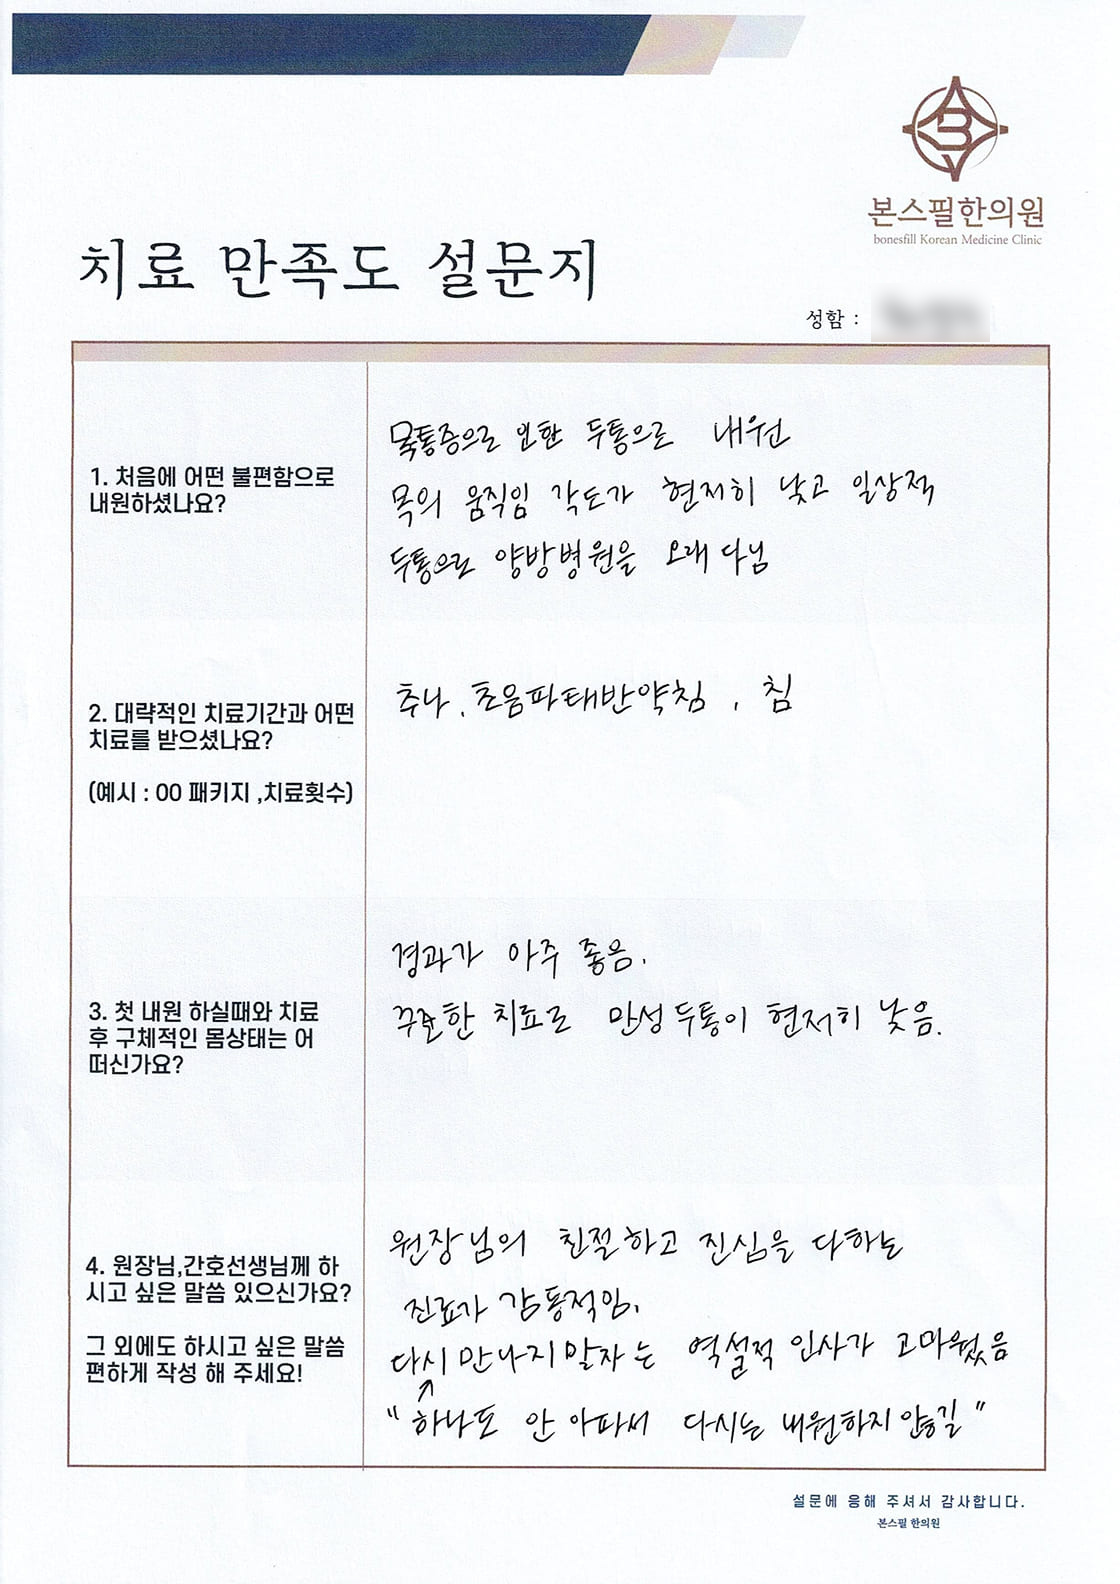 본스필한의원
bonesfill Korean Medicine Clinic
치료 만족도 설문지
성함 :
1. 처음에 어떤 불편함으로
내원하셨나요?
목통증으로 인한 두통으로 내원
목의 움직임 각도가 현저히 낮고 일상적
두통으로 양방병원을 오래 다님
2. 대략적인 치료기간과 어떤
치료를 받으셨나요?
(예시 : 00 패키지 ,치료횟수)
추나, 초음파태반약침, 침
3. 첫 내원 하실때와 치료
후 구체적인 몸상태는 어
떠신가요?
경과가 아주 좋음.
꾸준한 치료로 만성두통이 현저히 낮음.
4. 원장님,간호선생님께 하
시고 싶은 말씀 있으신가요?
그 외에도 하시고 싶은 말씀
편하게 작성 해 주세요!
원장님의 친절하고 진심을 다하는
진료가 감동적임.
다시 만나지말자는 역설적 인사가 고마웠음
"하나도 안 아파서 다시는 내원하지 않길"
설문에 응해 주셔서 감사합니다.
본스필 한의원